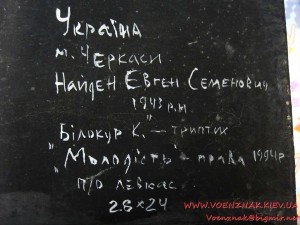 Україна
м. Черкаси
Найден Евген Семенович
1943 р.н.
Білокур К. – триптих
"Молодість" – права 1994р
п/о левкас
28×24
WWW.VOENZNAK.KIEV.UA
Voenznak@bigmir.net